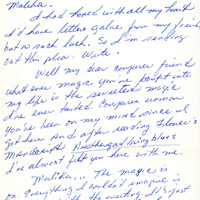 Maliha.
I had hoped with all my heart
I'd have letters galore from my friend
but no such luck. So I'm sending
out this plea. Write.
Well my dear conjurer friend
what ever magic you've brought into
my life is the sweetest magic
I've ever tasted. Conjure woman
you've been on my mind since I
got here and after reading Flower's
Manuscript Another good loving blues
I've almost felt you here with me.
Maliha... The magic is
on. Everything I couldn't imagine is
with the writing. It's just